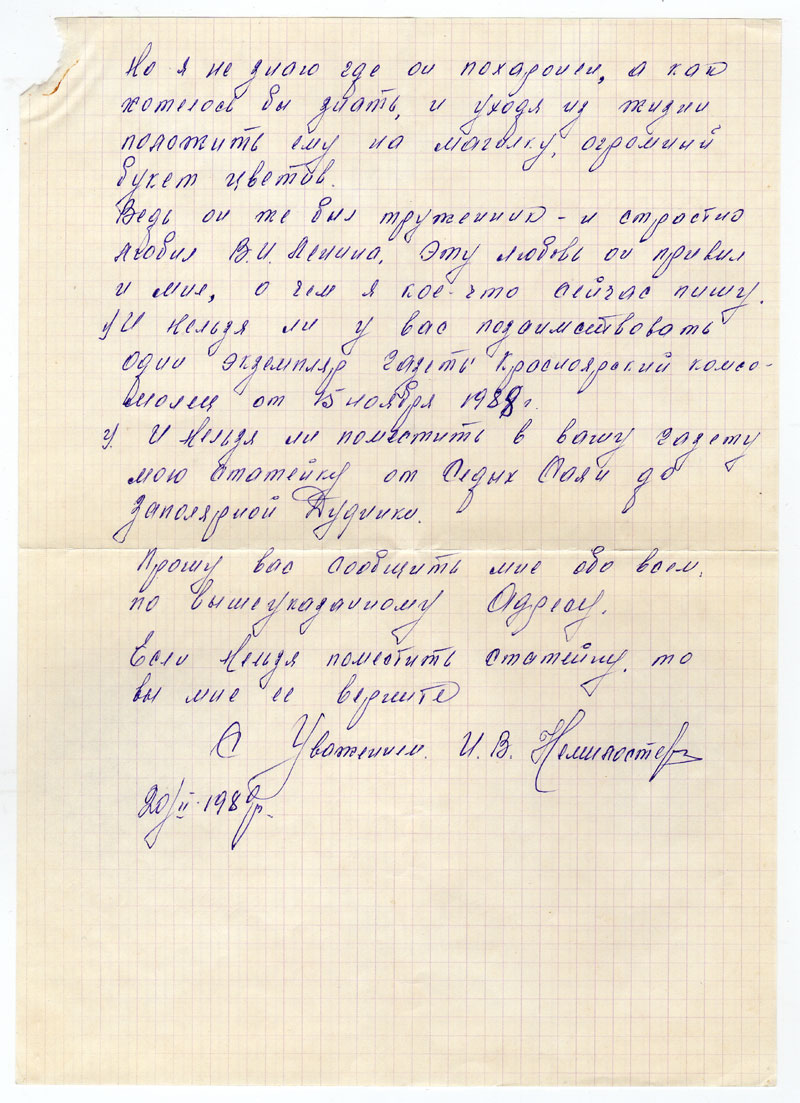 Но я не знаю где он похаронен, а как
хотелось бы знать, и уходя из жизни
положить ему на магилку, огромный
букет цветов.
Ведь он же был труженник - и страстно
любил В.И. Ленина. Эту любовь он привил
и мне, о чем я кое-что сейчас пишу.
И нельзя ли у вас позаимствовать
один экземпляр газеты Красноярский комсо-
молец от 15 ноября 1988 г.
И нельзя ли поместить в вашу газету
мою статейку от Седых Саян до
Заполярной Дудинки.
Прошу вас сообщить мне обо всем,
по вышеуказанному Адресу.
Если нельзя поместить статейку, то
вы мне ее верните
С Уважением. И. В.
20/II-1989г.